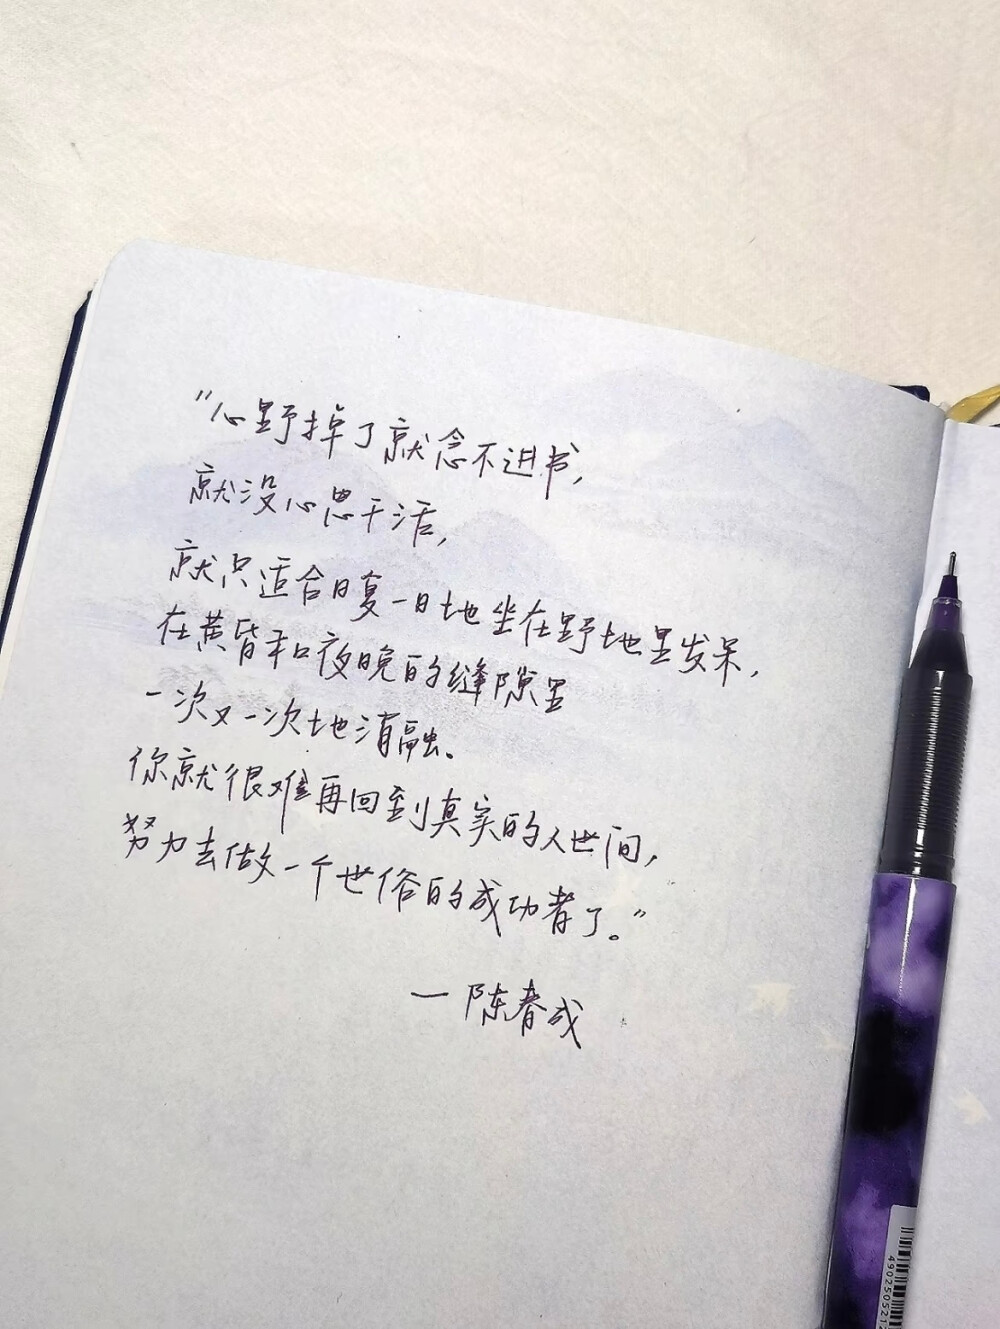 “心野掉了就念不进书，
就没心思干活，
就只适合日复一日地坐在野地里发呆，
在黄昏和夜晚的缝隙里
一次又一次地消融。
你就很难再回到真实的人世间，
努力去做一个世俗的成功者了。”
—陈春成
4902505212